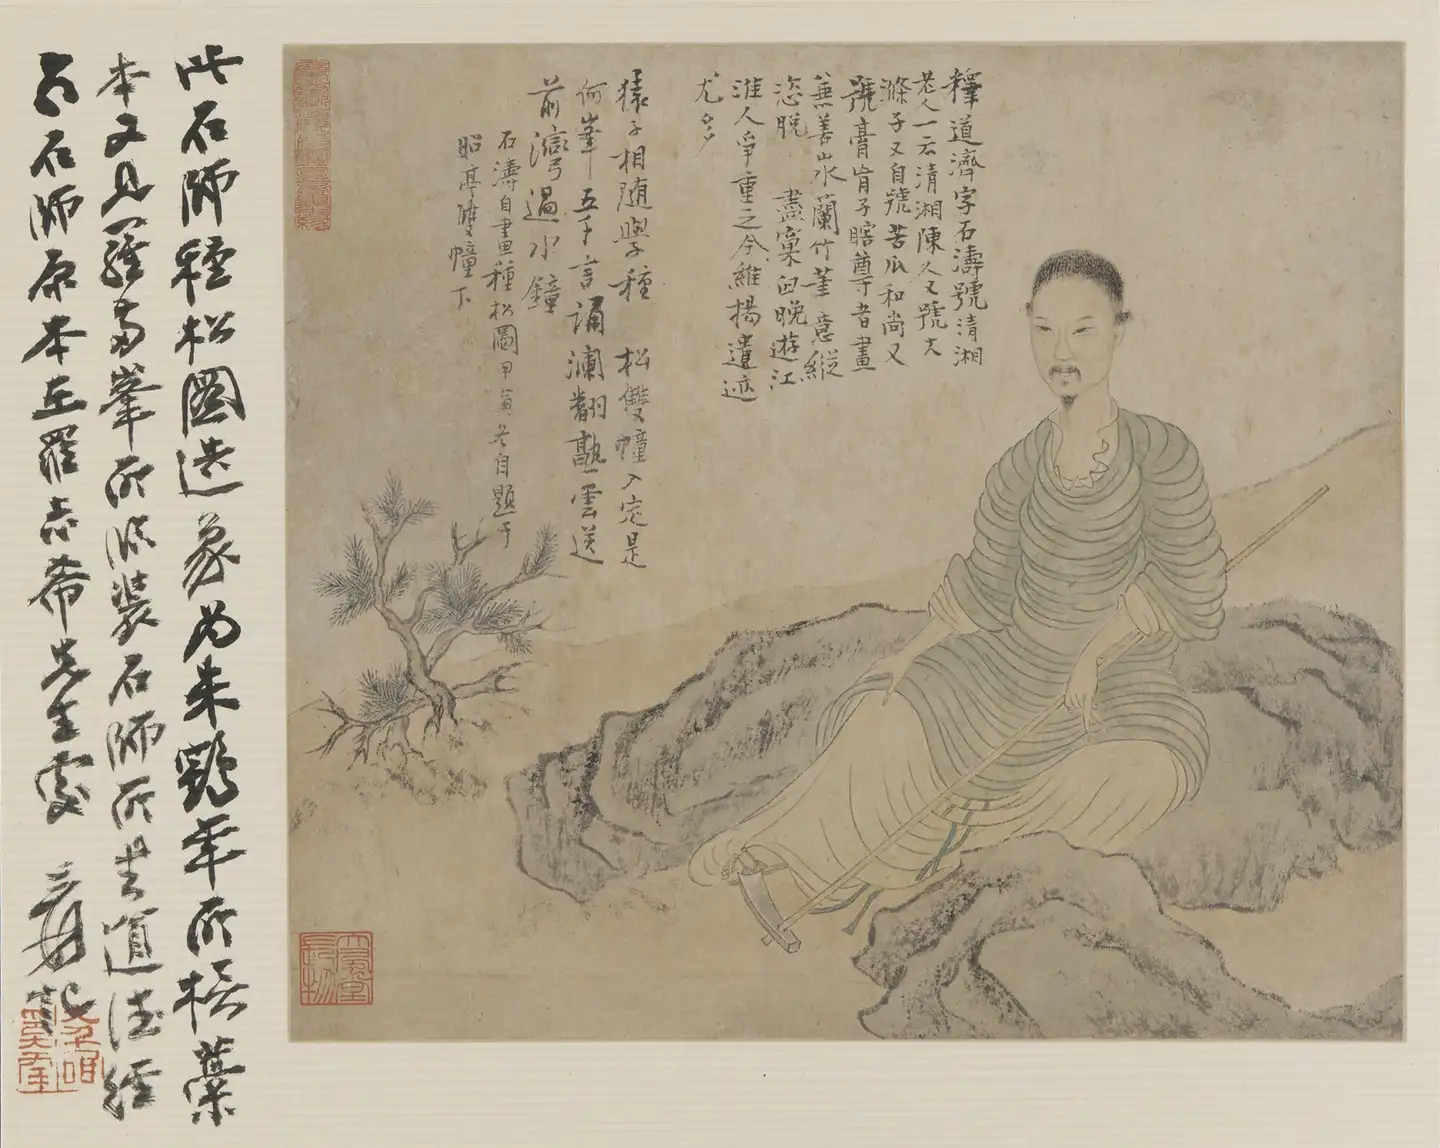 釋道濟字石濤號清湘
老人一云清湘陳人又號大
滌子又自號苦瓜和尚又
號膏肓子瞎尊者畫
兼善山水蘭竹筆意縱
恣脫 盡窠臼晚遊江
淮人爭重之今維揚遺迹
尤多
猿子相随學種 松雙幢入定是
何峯五千言誦瀾翻熟雲送
前灣過水鐘
石濤自畫種松圖甲寅冬自題于
昭亭雙幢下
此石師種松圖造象为朱鶴年所橅藁
本又見羅兩峯所臨裝石師所书道德經
石師原本在羅志希先生處 爰記